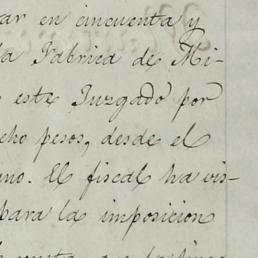 ar en cincuenta y
la Fabrica de Mi-
este Juzgado por
cho pesos, desde el
no. El fiscal ha vis-
para la imposicion